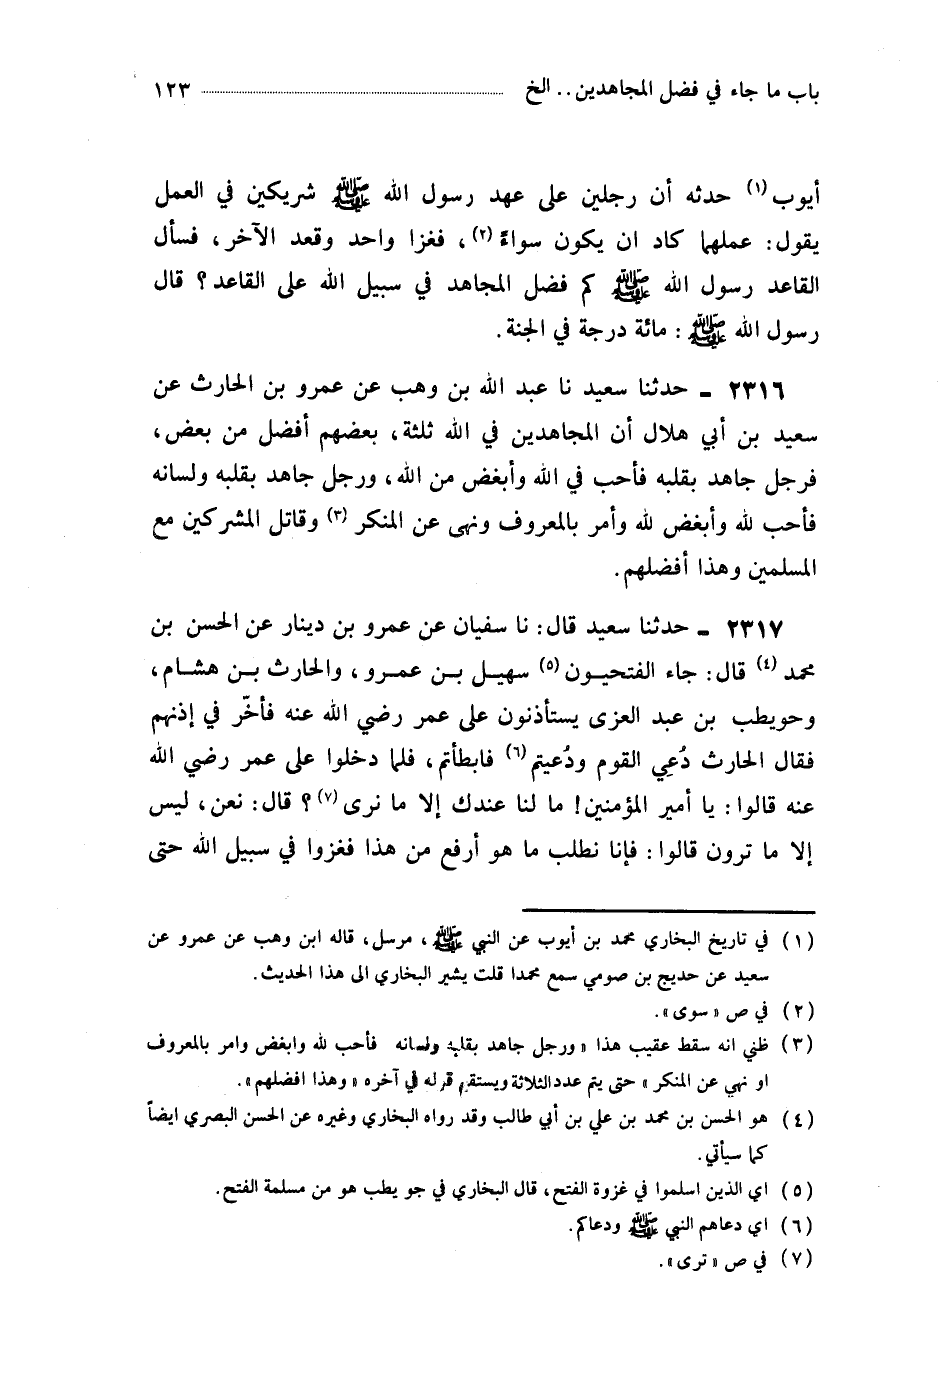 باب ما جاء في فضل المجاهدين.. الخ ١٢٣
أيوب (١) حدثه أن رجلين على عهد رسول الله ﷺ شريكين في العمل
يقول: عملهما كاد ان يكون سواءً (٢)، فغزا واحد وقعد الآخر، فسأل
القاعد رسول الله ﷺ كم فضل المجاهد في سبيل الله على القاعد؟ قال
رسول الله ﷺ: مائة درجة في الجنة.
٢٣١٦ ـ حدثنا سعيد نا عبد الله بن وهب عن عمرو بن الحارث عن
سعيد بن أبي هلال أن المجاهدين في الله ثلثة، بعضهم أفضل من بعض،
فرجل جاهد بقلبه فأحب في الله وأبغض من الله، ورجل جاهد بقلبه ولسانه
فأحب لله وأبغض لله وأمر بالمعروف ونهى عن المنكر (٣) وقاتل المشركين مع
المسلمين وهذا أفضلهم.
٢٣١٧ ـ حدثنا سعيد قال: نا سفيان عن عمرو بن دينار عن الحسن بن
محمد (٤) قال: جاء الفتحيون (٥) سهيل بن عمرو، والحارث بن هشام،
وحويطب بن عبد العزى يستأذنون على عمر رضي الله عنه فأخّر في إذنهم
فقال الحارث دُعِي القوم ودُعيتم (٦) فابطأتم، فلما دخلوا على عمر رضي الله
عنه قالوا: يا أمير المؤمنين! ما لنا عندك إلا ما نرى (٧)؟ قال: نعن، ليس
إلا ما ترون قالوا: فإنا نطلب ما هو أرفع من هذا فغزوا في سبيل الله حتى
(١) في تاريخ البخاري محمد بن أيوب عن النبي ﷺ، مرسل، قاله ابن وهب عن عمرو عن
سعيد عن حديج بن صومي سمع محمدا قلت يشير البخاري الى هذا الحديث.
(٢) في ص «سوى».
(٣) ظني انه سقط عقيب هذا «ورجل جاهد بقلبه ولسانه فأحب لله وابغض وامر بالمعروف
او نهي عن المنكر» حتى يتم عدد الثلاثة ويستقيم قوله في آخره «وهذا افضلهم».
(٤) هو الحسن بن محمد بن علي بن أبي طالب وقد رواه البخاري وغيره عن الحسن البصري ايضاً
كما سيأتي.
(٥) اي الذين اسلموا في غزوة الفتح، قال البخاري في جو يطب هو من مسلمة الفتح.
(٦) اي دعاهم النبي ﷺ ودعاكم.
(٧) في ص «ترى».